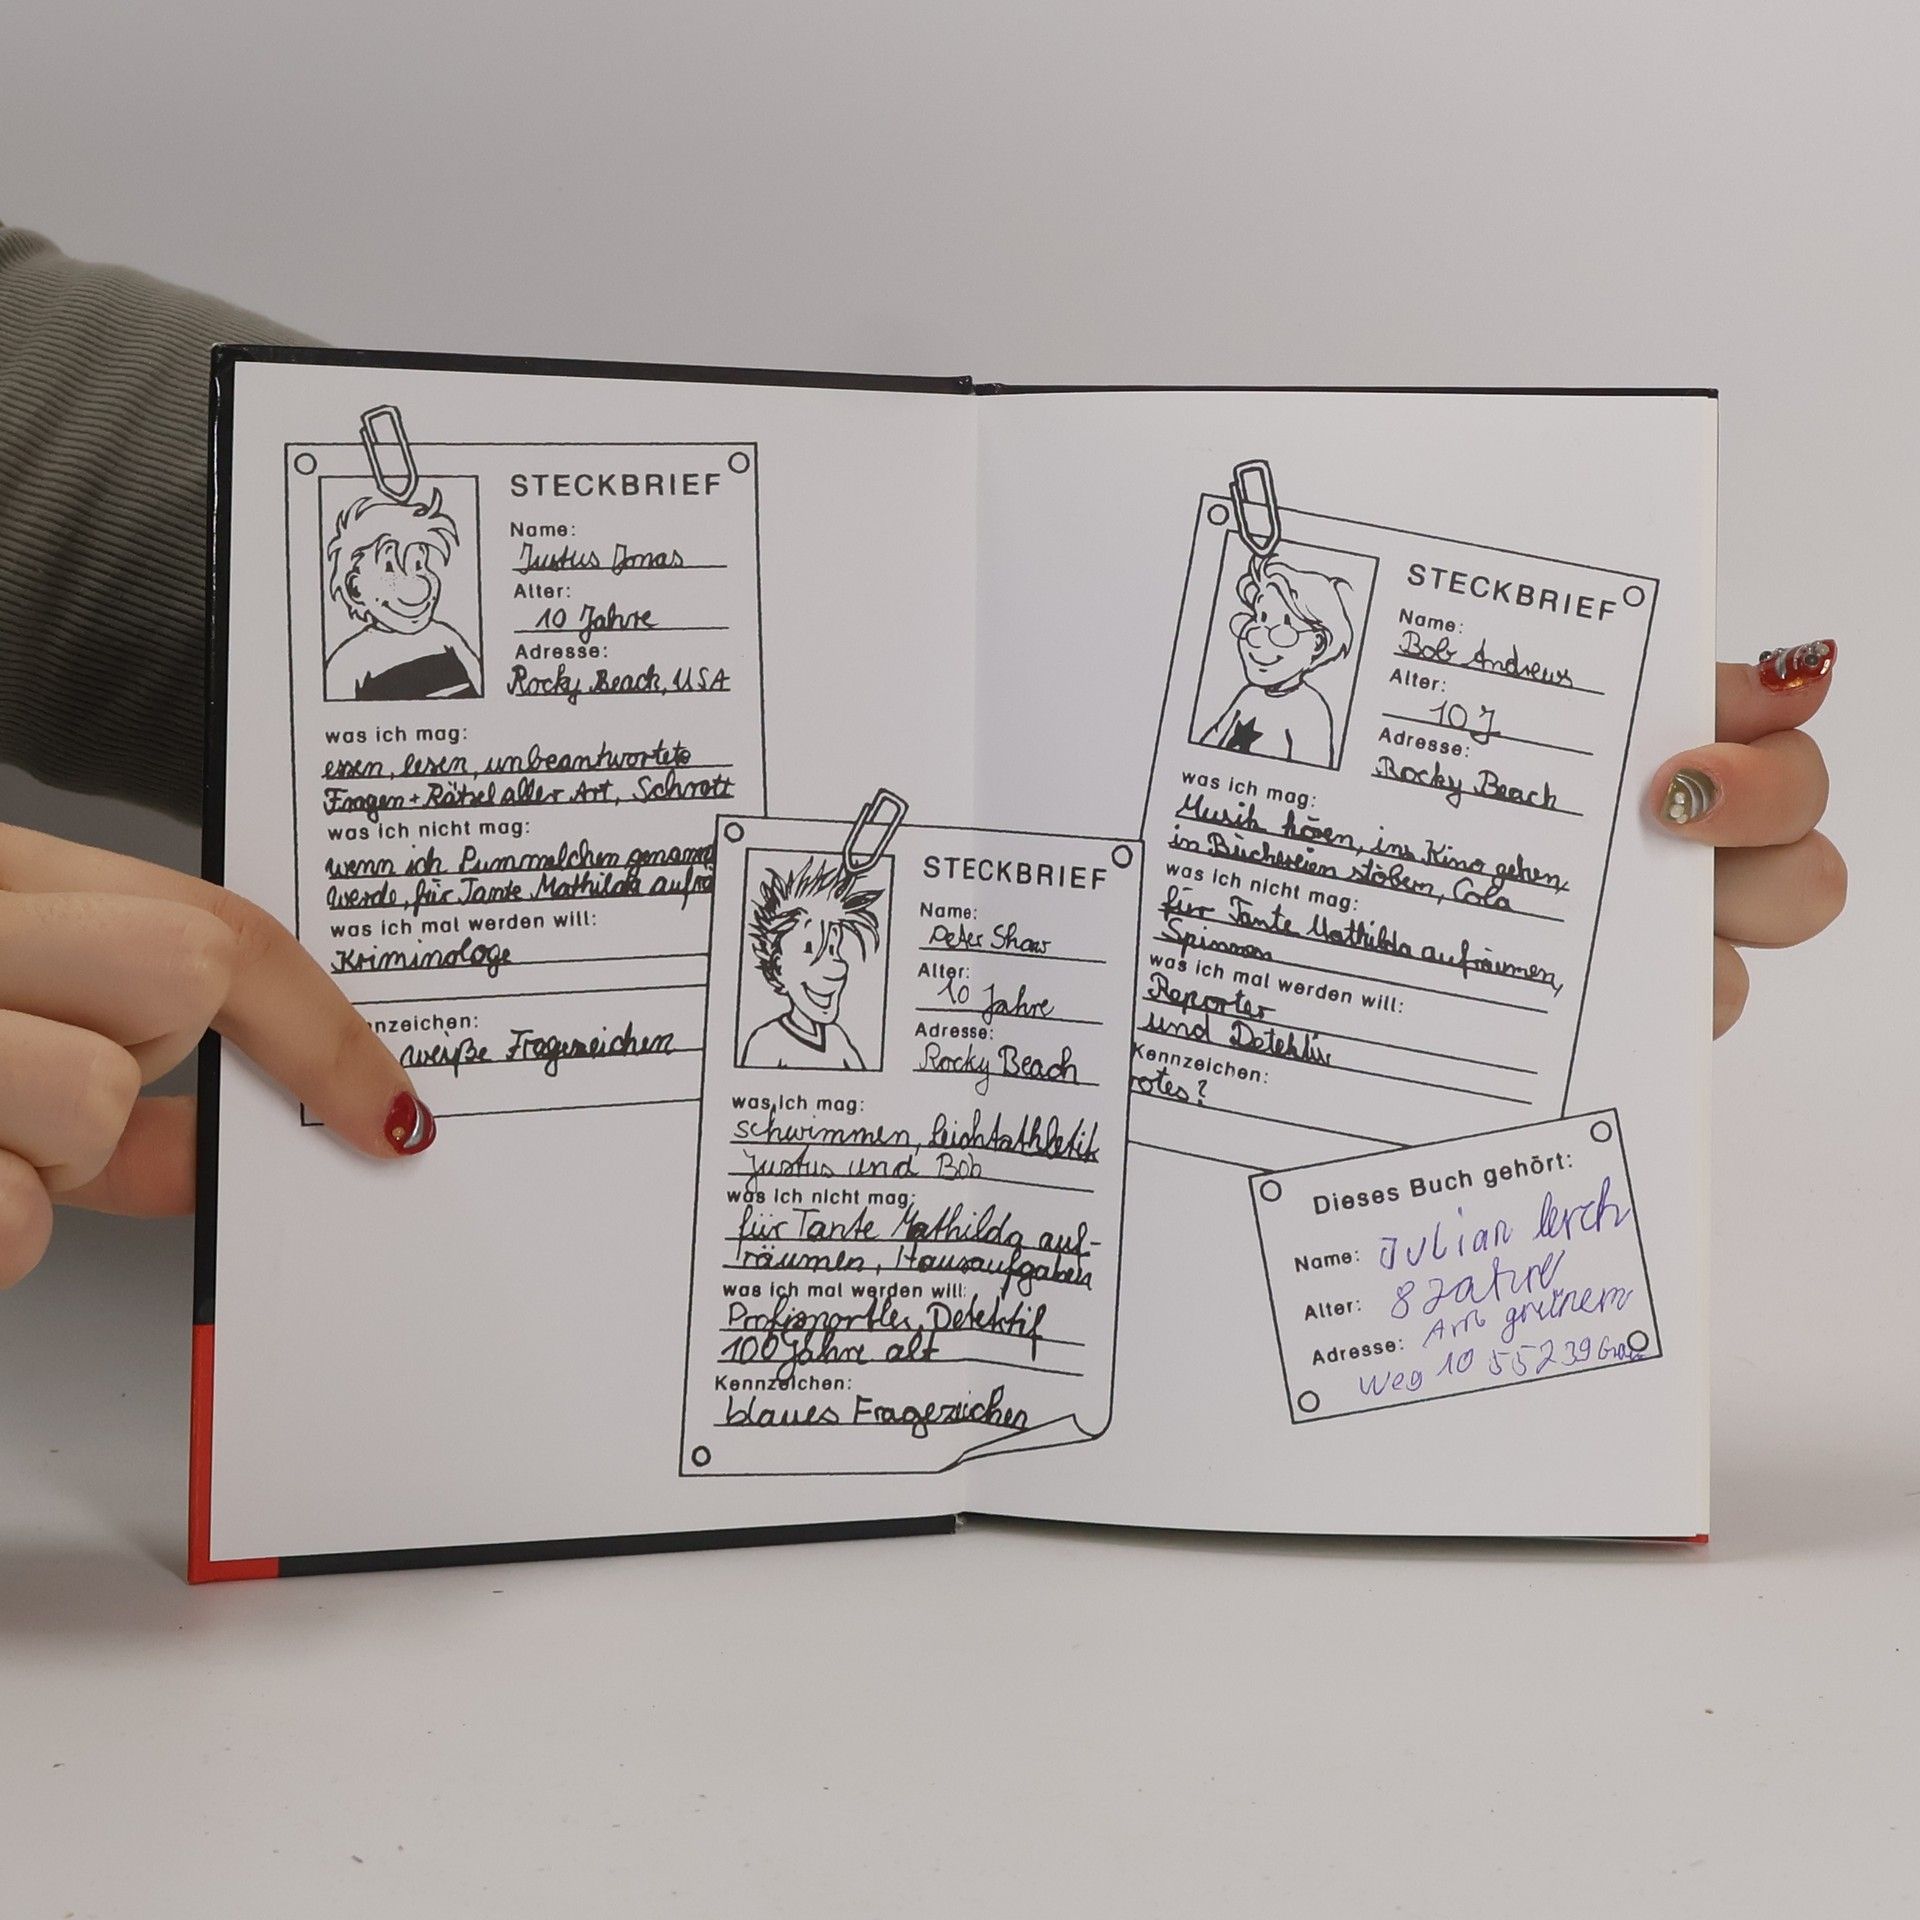 STECKBRIEF
Name:
Justus Jonas
Alter:
10 Jahre
Adresse:
Rocky Beach, USA
was ich mag:
essen, lesen, unbeantwortete
Fragen + Rätsel aller Art, Schrott
was ich nicht mag:
wenn ich Pummelchen genann
werde, für Tante Mathilda aufrä
was ich mal werden will:
Kriminologe
nnzeichen:
weiße Fragezeichen
STECKBRIEF
Name:
Peter Shaw
Alter:
10 Jahre
Adresse:
Rocky Beach
was ich mag:
schwimmen, Leichtathletik
Justus und Bob
was ich nicht mag:
für Tante Mathilda auf-
räumen, Hausaufgaben
was ich mal werden will:
Profisportler, Detektif
100 Jahre alt
Kennzeichen:
blaues Fragezeichen
STECKBRIEF
Name:
Bob Andrews
Alter:
10 J
Adresse:
Rocky Beach
was ich mag:
Musik hören, ins Kino gehen,
in Büchereien stöbern, Cola
was ich nicht mag:
für Tante Mathilda aufräumen,
Spinnen
was ich mal werden will:
Reporter
und Detektiv
Kennzeichen:
rotes?
Dieses Buch gehört:
Name: Julian Lerch
Alter: 8 Jahre
Adresse: Am grünem
Weg 10 55239